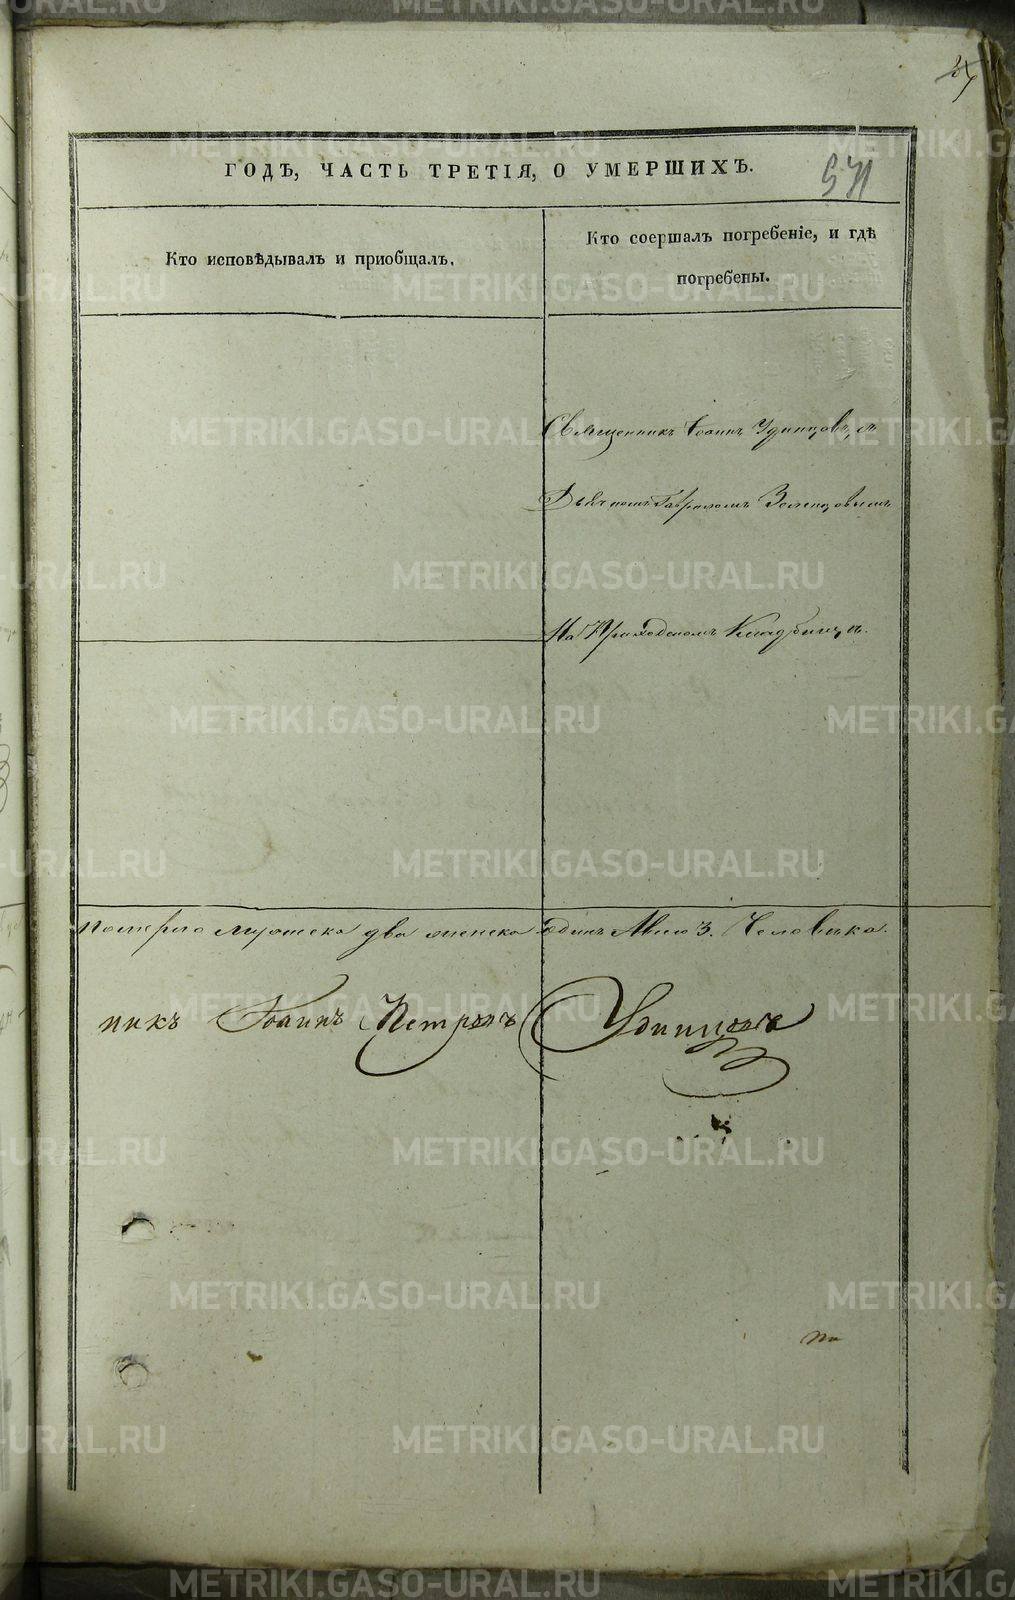 ГОДѢ, ЧАСТЬ ТРЕТІЯ, О УМЕРШИХЪ.
571
Кто исповѣдывалъ и приобщалъ.
Кто соершалъ погребеніе, и гдѣ
погребены.
Священникъ Іоаннъ Удинцовъ, съ
Дьячкомъ Гавриломъ Зеленцовымъ
На Приходскомъ Кладбищѣ.
мужеска два женска одинъ 3. Человѣка.
никъ Іоаннъ Петровъ Удинцовъ
METRIKI.GASO-URAL.RU